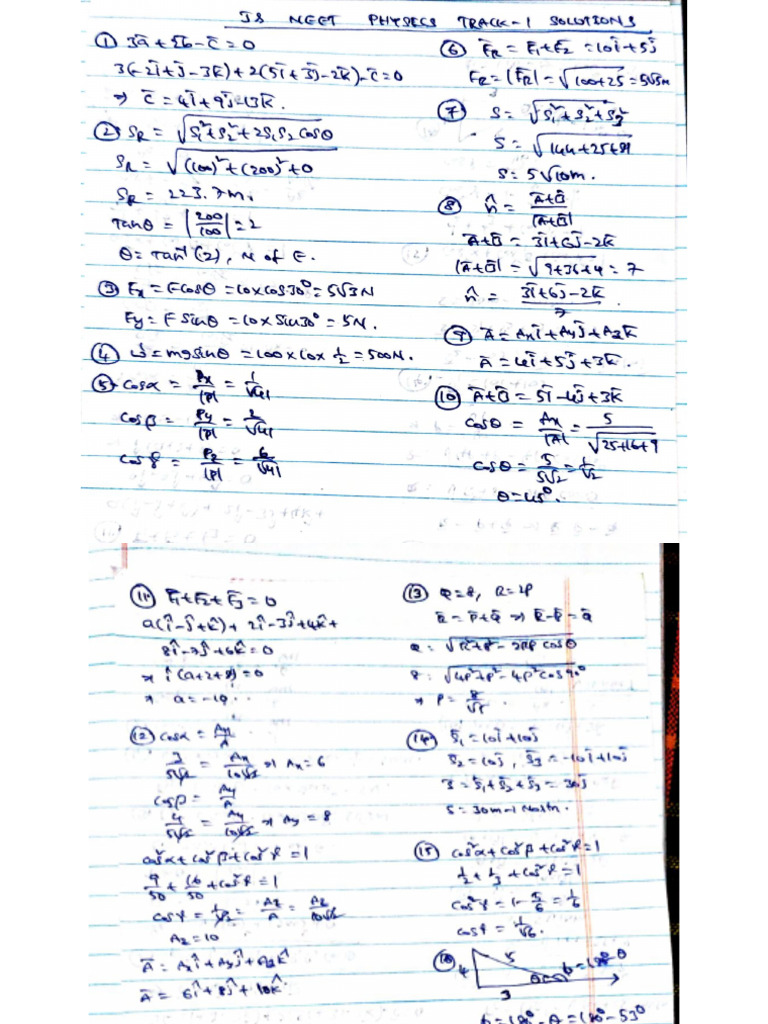 JS NEET PHYSICS TRACK-1 SOLUTIONS
① 3a̅ + 2b̅ - c̅ = 0
3(-2i̅+j̅-3k̅)+2(5i̅+3j̅-2k̅)-c̅=0
⇒ c̅ = 4i̅+9j̅-13k̅.
② S_R = √(S₁²+S₂²+2S₁S₂cosθ)
S_R = √((100)²+(200)²+0)
S_R = 223.7m.
Tanθ = |200/100| = 2
θ = Tan⁻¹(2), N of E.
③ Fx = Fcosθ = 10×cos30° = 5√3N
Fy = F sinθ = 10×sin30° = 5N.
④ W = mg sinθ = 100×10×1/2 = 500N.
⑤ cosα = Px/|P| = 1/√41
cosβ = Py/|P| = 2/√41
cosγ = Pz/|P| = 6/√41
⑥ F̅_R = F̅₁+F̅₂ = 10i̅+5j̅
F_R = |F̅_R| = √(100+25) = 5√5N
⑦ S = √(S₁²+S₂²+S₃²)
S = √(144+25+81)
S = 5√10m.
⑧ n̂ = (A̅+B̅)/|A̅+B̅|
A̅+B̅ = 3i̅+6j̅-2k̅
|A̅+B̅| = √(9+36+4) = 7
n̂ = (3i̅+6j̅-2k̅)/7
⑨ A̅ = Axi̅+Ayj̅+Azk̅
A̅ = 4i̅+5j̅+3k̅.
⑩ A̅+B̅ = 5i̅-4j̅+3k̅
cosθ = Ax/|A| = 5/√(25+16+9)
cosθ = 5/5√2 = 1/√2
θ = 45°.
⑪ F̅₁+F̅₂+F̅₃ = 0
a(î-ĵ+k̂)+2î-3ĵ+4k̂+
8î-7ĵ+6k̂=0
⇒ î(a+2+8)=0
⇒ a = -10.
⑫ cosα = Ax/A
3/5√2 = Ax/10√2 ⇒ Ax = 6
cosβ = Ay/A
4/5√2 = Ay/10√2 ⇒ Ay = 8
cos²α+cos²β+cos²γ=1
9/50+16/50+cos²γ=1
cosγ = 1/√2 = Az/A = Az/10√2
Az=10
A̅ = Axî+Ayĵ+Azk̂
A̅ = 6î+8ĵ+10k̂
⑬ Q=8, R=2P
R̅ = P̅+Q̅ ⇒ R̅-P̅ = Q̅
Q = √(R²+P²-2RP cosθ)
8 = √(4P²+P²-4P²cos90°)
⇒ P = 8/√5.
⑭ S̅₁ = 10i̅+10j̅
S̅₂ = 10j̅, S̅₃ = -10i̅+10j̅
S̅ = S̅₁+S̅₂+S̅₃ = 30j̅
S = 30m North.
⑮ cos²α+cos²β+cos²γ=1
1/2+1/3+cos²γ=1
cos²γ = 1-5/6 = 1/6
cosγ = 1/√6.
⑯ 4 5 3 θ
=180°-θ
=180°-θ=180°-53°